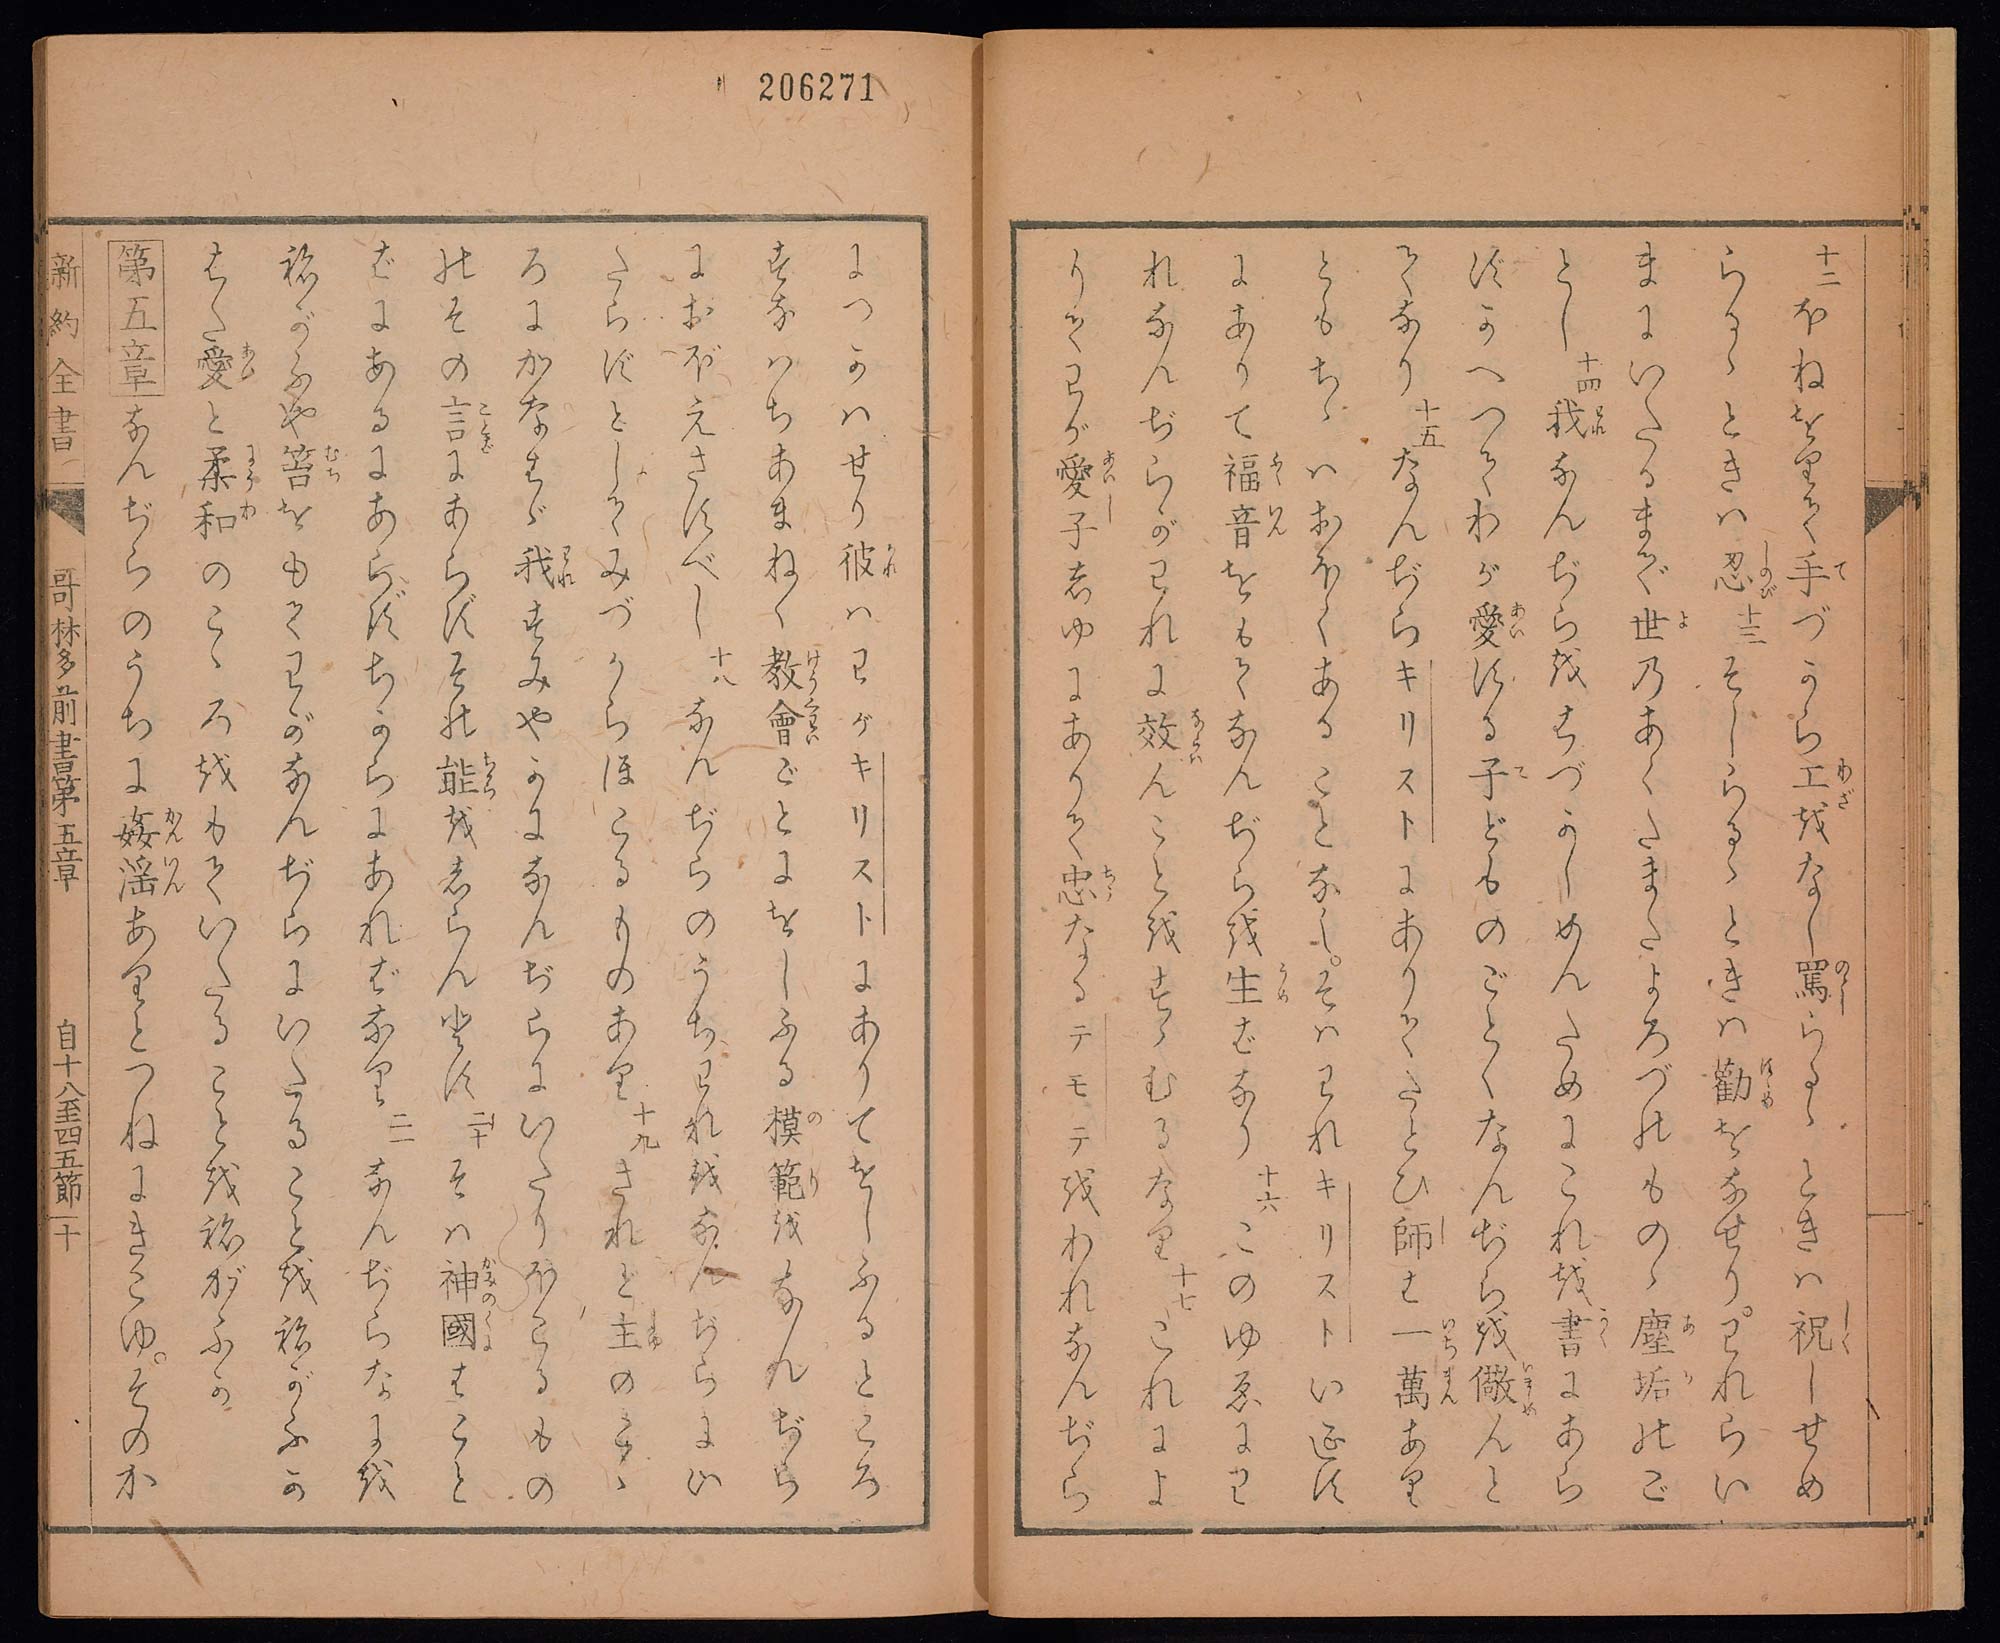 十二 ほねをりて手づから工をなし罵らるゝときは祝しせめ
らるゝときは忍 十三 そしらるゝときは勸をなせり。われらい
まにいたるまで世のあくたまたよろづのものゝ塵垢のご
とし 十四 我なんぢらをはづかしめんためにこれを書にあら
ずかへつてわが愛する子どものごとくなんぢらを儆んと
てなり 十五 なんぢらキリストにありてたとひ師は一萬あり
ともちゝはおほくあることなし。そはわれキリストいエス
にありて福音をもてなんぢらを生ばなり 十六 このゆゑにわ
れなんぢらがわれに效んことをすゝむるなり 十七 これによ
りてわが愛子しゆにありて忠なるテモテをわれなんぢら
につかはせり彼はわがキリストにありてをしふるところ
すなはちあまねく教會ごとにをしふる模範をなんぢら
におぼえさすべし 十八 なんぢらのうちわれをなんぢらにい
たらずとしてみづからほこるものあり 十九 されど主のこゝ
ろにかなはゞ我すみやかになんぢらにいたりほこるもの
のその言にあらずその能をしらんとす 二十 そは神國はこと
ばにあるにあらずちからにあればなり 二一 なんぢらなにを
ねがふや笞をもてわがなんぢらにいたることをねがふか
また愛と柔和のこゝろをもていたることをねがふか
第五章 なんぢらのうちに姦淫ありとつねにきこゆ。そのか
新約全書 哥林多前書第五章 自十八至四五節 十
206271